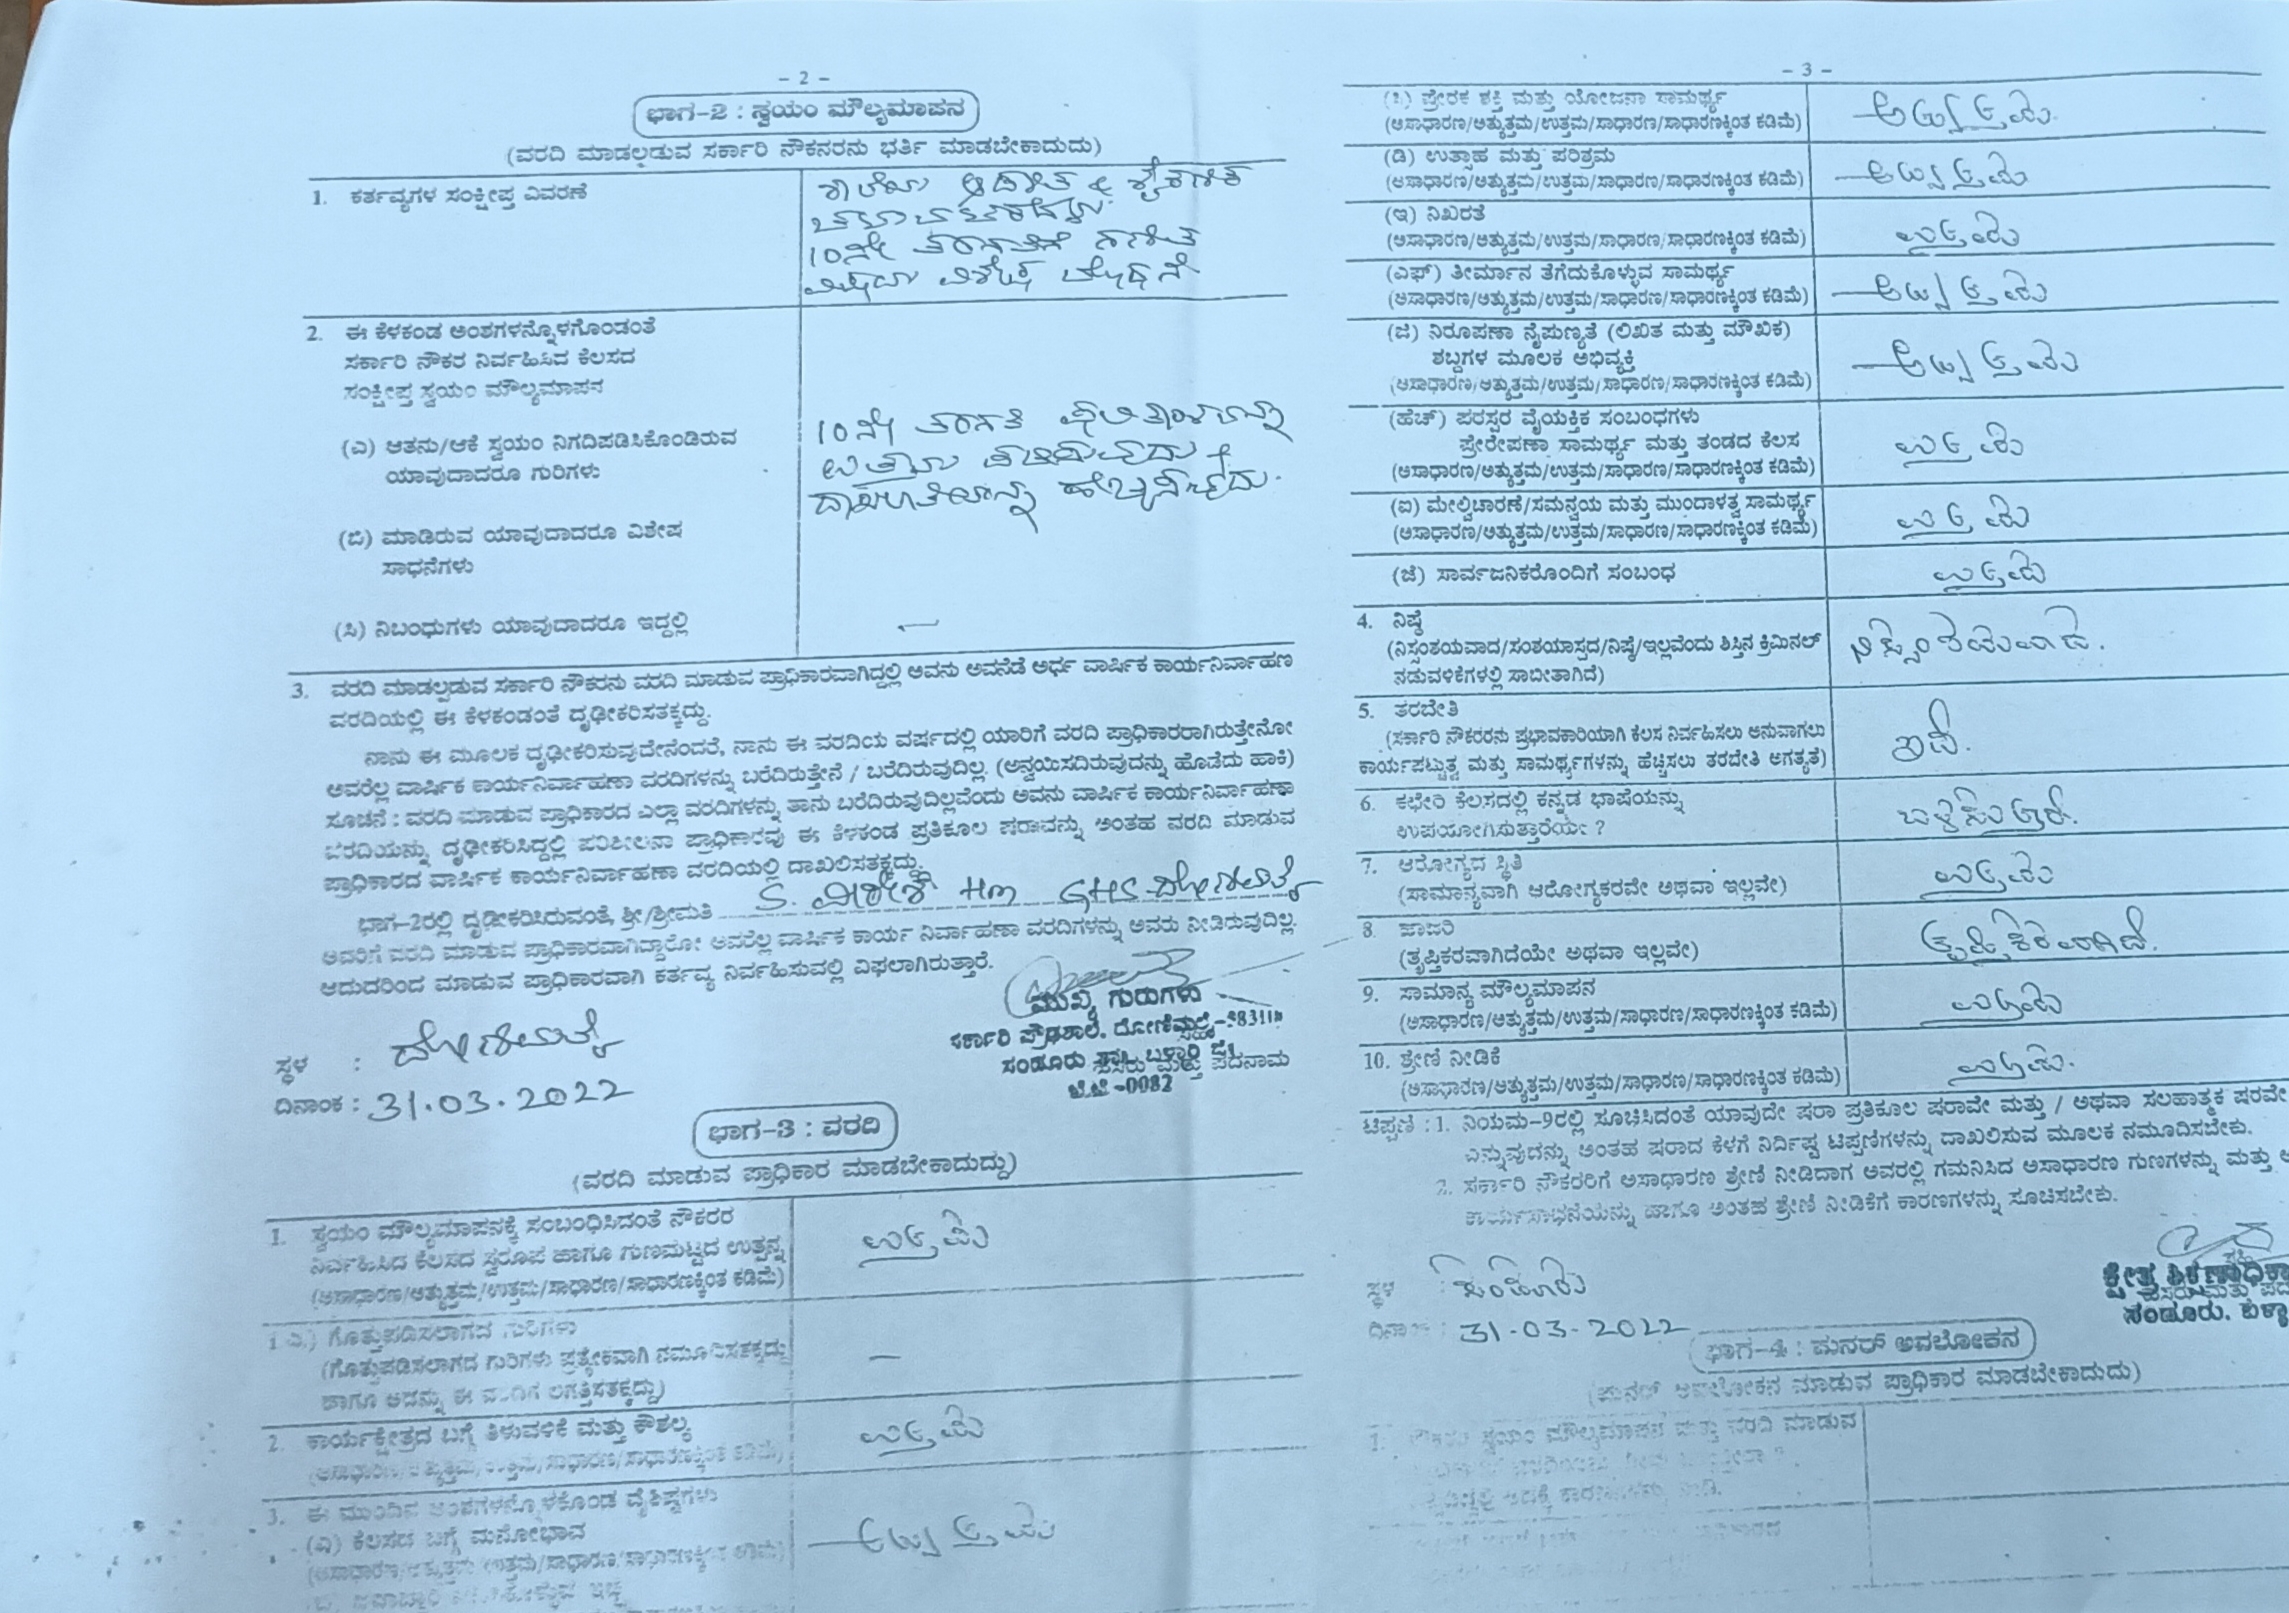 – 2 –
ಭಾಗ–2 : ಸ್ವಯಂ ಮೌಲ್ಯಮಾಪನ
(ವರದಿ ಮಾಡಲ್ಪಡುವ ಸರ್ಕಾರಿ ನೌಕರರನು ಭರ್ತಿ ಮಾಡಬೇಕಾದುದು)
1. ಕರ್ತವ್ಯಗಳ ಸಂಕ್ಷೀಪ್ತ ವಿವರಣೆ
ಶಾಲೆಯ ಆಡಳಿತ & ಶೈಕ್ಷಣಿಕ
10ನೇ ತರಗತಿಗೆ ಗಣಿತ
ವಿಷಯ ವಿಶೇಷ ಬೋಧನೆ
2. ಈ ಕೆಳಕಂಡ ಅಂಶಗಳನ್ನೊಳಗೊಂಡಂತೆ
ಸರ್ಕಾರಿ ನೌಕರ ನಿರ್ವಹಿಸಿದ ಕೆಲಸದ
ಸಂಕ್ಷೀಪ್ತ ಸ್ವಯಂ ಮೌಲ್ಯಮಾಪನ
(ಎ) ಆತನು/ಆಕೆ ಸ್ವಯಂ ನಿಗದಿಪಡಿಸಿಕೊಂಡಿರುವ
ಯಾವುದಾದರೂ ಗುರಿಗಳು
10ನೇ ತರಗತಿ ಫಲಿತಾಂಶವನ್ನು
ಉತ್ತಮ ಪಡಿಸುವುದು +
ದಾಖಲಾತಿಯನ್ನು ಹೆಚ್ಚಿಸುವುದು.
(ಬಿ) ಮಾಡಿರುವ ಯಾವುದಾದರೂ ವಿಶೇಷ
ಸಾಧನೆಗಳು
(ಸಿ) ನಿಬಂಧುಗಳು ಯಾವುದಾದರೂ ಇದ್ದಲ್ಲಿ
—
3. ವರದಿ ಮಾಡಲ್ಪಡುವ ಸರ್ಕಾರಿ ನೌಕರನು ವರದಿ ಮಾಡುವ ಪ್ರಾಧಿಕಾರವಾಗಿದ್ದಲ್ಲಿ ಅವನು ಅವನೆಡೆ ಅರ್ಧ ವಾರ್ಷಿಕ ಕಾರ್ಯನಿರ್ವಾಹಣ
ವರದಿಯಲ್ಲಿ ಈ ಕೆಳಕಂಡಂತೆ ದೃಢೀಕರಿಸತಕ್ಕದ್ದು.
ನಾನು ಈ ಮೂಲಕ ದೃಢೀಕರಿಸುವುದೇನೆಂದರೆ, ನಾನು ಈ ವರದಿಯ ವರ್ಷದಲ್ಲಿ ಯಾರಿಗೆ ವರದಿ ಪ್ರಾಧಿಕಾರರಾಗಿರುತ್ತೇನೋ
ಅವರೆಲ್ಲ ವಾರ್ಷಿಕ ಕಾರ್ಯನಿರ್ವಾಹಣಾ ವರದಿಗಳನ್ನು ಬರೆದಿರುತ್ತೇನೆ / ಬರೆದಿರುವುದಿಲ್ಲ. (ಅನ್ವಯಿಸದಿರುವುದನ್ನು ಹೊಡೆದು ಹಾಕಿ)
ಸೂಚನೆ : ವರದಿ ಮಾಡುವ ಪ್ರಾಧಿಕಾರದ ಎಲ್ಲಾ ವರದಿಗಳನ್ನು ತಾನು ಬರೆದಿರುವುದಿಲ್ಲವೆಂದು ಅವನು ವಾರ್ಷಿಕ ಕಾರ್ಯನಿರ್ವಾಹಣಾ
ವರದಿಯನ್ನು ದೃಢೀಕರಿಸಿದ್ದಲ್ಲಿ ಪರಿಶೀಲನಾ ಪ್ರಾಧಿಕಾರವು ಈ ಕೆಳಕಂಡ ಪ್ರತಿಕೂಲ ಷರಾವನ್ನು ಅಂತಹ ವರದಿ ಮಾಡುವ
ಪ್ರಾಧಿಕಾರದ ವಾರ್ಷಿಕ ಕಾರ್ಯನಿರ್ವಾಹಣಾ ವರದಿಯಲ್ಲಿ ದಾಖಲಿಸತಕ್ಕದ್ದು.
ಭಾಗ–2ರಲ್ಲಿ ದೃಢೀಕರಿಸಿರುವಂತೆ, ಶ್ರೀ/ಶ್ರೀಮತಿ S. ವೀರೇಶ್ HM GHS ದೋಣಿಮಲೈ
ಅವರಿಗೆ ವರದಿ ಮಾಡುವ ಪ್ರಾಧಿಕಾರವಾಗಿದ್ದಾರೋ ಅವರೆಲ್ಲ ವಾರ್ಷಿಕ ಕಾರ್ಯ ನಿರ್ವಾಹಣಾ ವರದಿಗಳನ್ನು ಅವರು ನೀಡಿರುವುದಿಲ್ಲ.
ಆದುದರಿಂದ ಮಾಡುವ ಪ್ರಾಧಿಕಾರವಾಗಿ ಕರ್ತವ್ಯ ನಿರ್ವಹಿಸುವಲ್ಲಿ ವಿಫಲಾಗಿರುತ್ತಾರೆ.
ಮುಖ್ಯ ಗುರುಗಳು
ಸರ್ಕಾರಿ ಪ್ರೌಢಶಾಲೆ. ದೋಣಿಮಲೈ–
ಸಂಡೂರು ತಾ॥ ಬಳ್ಳಾರಿ ಜಿ॥
ಹೆಸರು ಮತ್ತು ಪದನಾಮ
-0082
ಸ್ಥಳ : ದೋಣಿಮಲೈ
ದಿನಾಂಕ : 31.03.2022
ಭಾಗ–3 : ವರದಿ
(ವರದಿ ಮಾಡುವ ಪ್ರಾಧಿಕಾರ ಮಾಡಬೇಕಾದುದ್ದು)
1. ಸ್ವಯಂ ಮೌಲ್ಯಮಾಪನಕ್ಕೆ ಸಂಬಂಧಿಸಿದಂತೆ ನೌಕರರ
ನಿರ್ವಹಿಸಿದ ಕೆಲಸದ ಸ್ವರೂಪ ಹಾಗೂ ಗುಣಮಟ್ಟದ ಉತ್ಪನ್ನ
(ಅಸಾಧಾರಣ/ಅತ್ಯುತ್ತಮ/ಉತ್ತಮ/ಸಾಧಾರಣ/ಸಾಧಾರಣಕ್ಕಿಂತ ಕಡಿಮೆ)
ಉತ್ತಮ
1 ಎ.) ಗೊತ್ತುಪಡಿಸಲಾಗದ ಗುರಿಗಳು
(ಗೊತ್ತುಪಡಿಸಲಾಗದ ಗುರಿಗಳು ಪ್ರತ್ಯೇಕವಾಗಿ ನಮೂದಿಸತಕ್ಕದ್ದು
ಹಾಗೂ ಅದನ್ನು ಈ ವರದಿಗೆ ಲಗತ್ತಿಸತಕ್ಕದ್ದು)
–
2. ಕಾರ್ಯಕ್ಷೇತ್ರದ ಬಗ್ಗೆ ತಿಳುವಳಿಕೆ ಮತ್ತು ಕೌಶಲ್ಯ
(ಅಸಾಧಾರಣ/ಅತ್ಯುತ್ತಮ/ಉತ್ತಮ/ಸಾಧಾರಣ/ಸಾಧಾರಣಕ್ಕಿಂತ ಕಡಿಮೆ)
ಉತ್ತಮ
3. ಈ ಮುಂದಿನ ಅಂಶಗಳನ್ನೊಳಕೊಂಡ ವೈಶಿಷ್ಟ್ಯಗಳು
(ಎ) ಕೆಲಸದ ಬಗ್ಗೆ ಮನೋಭಾವ
(ಅಸಾಧಾರಣ/ಅತ್ಯುತ್ತಮ/ಉತ್ತಮ/ಸಾಧಾರಣ/ಸಾಧಾರಣಕ್ಕಿಂತ ಕಡಿಮೆ)
ಅತ್ಯುತ್ತಮ
– 3 –
(ಸಿ) ಪ್ರೇರಕ ಶಕ್ತಿ ಮತ್ತು ಯೋಜನಾ ಸಾಮರ್ಥ್ಯ
(ಅಸಾಧಾರಣ/ಅತ್ಯುತ್ತಮ/ಉತ್ತಮ/ಸಾಧಾರಣ/ಸಾಧಾರಣಕ್ಕಿಂತ ಕಡಿಮೆ)
ಅತ್ಯುತ್ತಮ
(ಡಿ) ಉತ್ಸಾಹ ಮತ್ತು ಪರಿಶ್ರಮ
(ಅಸಾಧಾರಣ/ಅತ್ಯುತ್ತಮ/ಉತ್ತಮ/ಸಾಧಾರಣ/ಸಾಧಾರಣಕ್ಕಿಂತ ಕಡಿಮೆ)
ಅತ್ಯುತ್ತಮ
(ಇ) ನಿಖರತೆ
(ಅಸಾಧಾರಣ/ಅತ್ಯುತ್ತಮ/ಉತ್ತಮ/ಸಾಧಾರಣ/ಸಾಧಾರಣಕ್ಕಿಂತ ಕಡಿಮೆ)
ಉತ್ತಮ
(ಎಫ್) ತೀರ್ಮಾನ ತೆಗೆದುಕೊಳ್ಳುವ ಸಾಮರ್ಥ್ಯ
(ಅಸಾಧಾರಣ/ಅತ್ಯುತ್ತಮ/ಉತ್ತಮ/ಸಾಧಾರಣ/ಸಾಧಾರಣಕ್ಕಿಂತ ಕಡಿಮೆ)
ಅತ್ಯುತ್ತಮ
(ಜಿ) ನಿರೂಪಣಾ ನೈಪುಣ್ಯತೆ (ಲಿಖಿತ ಮತ್ತು ಮೌಖಿಕ)
ಶಬ್ದಗಳ ಮೂಲಕ ಅಭಿವ್ಯಕ್ತಿ
(ಅಸಾಧಾರಣ/ಅತ್ಯುತ್ತಮ/ಉತ್ತಮ/ಸಾಧಾರಣ/ಸಾಧಾರಣಕ್ಕಿಂತ ಕಡಿಮೆ)
ಅತ್ಯುತ್ತಮ
(ಹೆಚ್) ಪರಸ್ಪರ ವೈಯಕ್ತಿಕ ಸಂಬಂಧಗಳು
ಪ್ರೇರೇಪಣಾ ಸಾಮರ್ಥ್ಯ ಮತ್ತು ತಂಡದ ಕೆಲಸ
(ಅಸಾಧಾರಣ/ಅತ್ಯುತ್ತಮ/ಉತ್ತಮ/ಸಾಧಾರಣ/ಸಾಧಾರಣಕ್ಕಿಂತ ಕಡಿಮೆ)
ಉತ್ತಮ
(ಐ) ಮೇಲ್ವಿಚಾರಣೆ/ಸಮನ್ವಯ ಮತ್ತು ಮುಂದಾಳತ್ವ ಸಾಮರ್ಥ್ಯ
(ಅಸಾಧಾರಣ/ಅತ್ಯುತ್ತಮ/ಉತ್ತಮ/ಸಾಧಾರಣ/ಸಾಧಾರಣಕ್ಕಿಂತ ಕಡಿಮೆ)
ಉತ್ತಮ
(ಜೆ) ಸಾರ್ವಜನಿಕರೊಂದಿಗೆ ಸಂಬಂಧ
ಉತ್ತಮ
4. ನಿಷ್ಠೆ
(ನಿಸ್ಸಂಶಯವಾದ/ಸಂಶಯಾಸ್ಪದ/ನಿಷ್ಠೆ/ಇಲ್ಲವೆಂದು ಶಿಸ್ತಿನ ಕ್ರಿಮಿನಲ್
ನಡುವಳಿಕೆಗಳಲ್ಲಿ ಸಾಬೀತಾಗಿದೆ)
ನಿಸ್ಸಂಶಯವಾದ.
5. ತರಬೇತಿ
(ಸರ್ಕಾರಿ ನೌಕರರನು ಪ್ರಭಾವಕಾರಿಯಾಗಿ ಕೆಲಸ ನಿರ್ವಹಿಸಲು ಅನುವಾಗಲು
ಕಾರ್ಯಪಟ್ಟುತ್ವ ಮತ್ತು ಸಾಮರ್ಥ್ಯಗಳನ್ನು ಹೆಚ್ಚಿಸಲು ತರಬೇತಿ ಅಗತ್ಯತೆ)
ಇದೆ.
6. ಕಛೇರಿ ಕೆಲಸದಲ್ಲಿ ಕನ್ನಡ ಭಾಷೆಯನ್ನು
ಉಪಯೋಗಿಸುತ್ತಾರೆಯೇ ?
ಬಳಸುತ್ತಾರೆ.
7. ಆರೋಗ್ಯದ ಸ್ಥಿತಿ
(ಸಾಮಾನ್ಯವಾಗಿ ಆರೋಗ್ಯಕರವೇ ಅಥವಾ ಇಲ್ಲವೇ)
ಉತ್ತಮ
8. ಹಾಜರಿ
(ತೃಪ್ತಿಕರವಾಗಿದೆಯೇ ಅಥವಾ ಇಲ್ಲವೇ)
ತೃಪ್ತಿಕರವಾಗಿದೆ.
9. ಸಾಮಾನ್ಯ ಮೌಲ್ಯಮಾಪನ
(ಅಸಾಧಾರಣ/ಅತ್ಯುತ್ತಮ/ಉತ್ತಮ/ಸಾಧಾರಣ/ಸಾಧಾರಣಕ್ಕಿಂತ ಕಡಿಮೆ)
ಉತ್ತಮ
10. ಶ್ರೇಣಿ ನೀಡಿಕೆ
(ಅಸಾಧಾರಣ/ಅತ್ಯುತ್ತಮ/ಉತ್ತಮ/ಸಾಧಾರಣ/ಸಾಧಾರಣಕ್ಕಿಂತ ಕಡಿಮೆ)
ಉತ್ತಮ.
ಟಿಪ್ಪಣಿ : 1. ನಿಯಮ–9ರಲ್ಲಿ ಸೂಚಿಸಿದಂತೆ ಯಾವುದೇ ಷರಾ ಪ್ರತಿಕೂಲ ಷರಾವೇ ಮತ್ತು / ಅಥವಾ ಸಲಹಾತ್ಮಕ ಷರವೇ
ಎನ್ನುವುದನ್ನು ಅಂತಹ ಷರಾದ ಕೆಳಗೆ ನಿರ್ದಿಷ್ಟ ಟಿಪ್ಪಣಿಗಳನ್ನು ದಾಖಲಿಸುವ ಮೂಲಕ ನಮೂದಿಸಬೇಕು.
2. ಸರ್ಕಾರಿ ನೌಕರರಿಗೆ ಅಸಾಧಾರಣ ಶ್ರೇಣಿ ನೀಡಿದಾಗ ಅವರಲ್ಲಿ ಗಮನಿಸಿದ ಅಸಾಧಾರಣ ಗುಣಗಳನ್ನು ಮತ್ತು
ಕಾರ್ಯಸಾಧನೆಯನ್ನು ಹಾಗೂ ಅಂತಹ ಶ್ರೇಣಿ ನೀಡಿಕೆಗೆ ಕಾರಣಗಳನ್ನು ಸೂಚಿಸಬೇಕು.
ಸ್ಥಳ : ಸಂಡೂರು
ದಿನಾಂಕ : 31-03-2022
ಸಹಿ
ಕ್ಷೇತ್ರ ಶಿಕ್ಷಣಾಧಿಕಾ
ಹೆಸರು ಮತ್ತು ಪದ
ಸಂಡೂರು.
ಭಾಗ–4 : ಪುನರ್ ಅವಲೋಕನ
(ಪುನರ್ ಅವಲೋಕನ ಮಾಡುವ ಪ್ರಾಧಿಕಾರ ಮಾಡಬೇಕಾದುದು)
1. ಸ್ವಯಂ ಮೌಲ್ಯಮಾಪನ ಮತ್ತು ವರದಿ ಮಾಡುವ